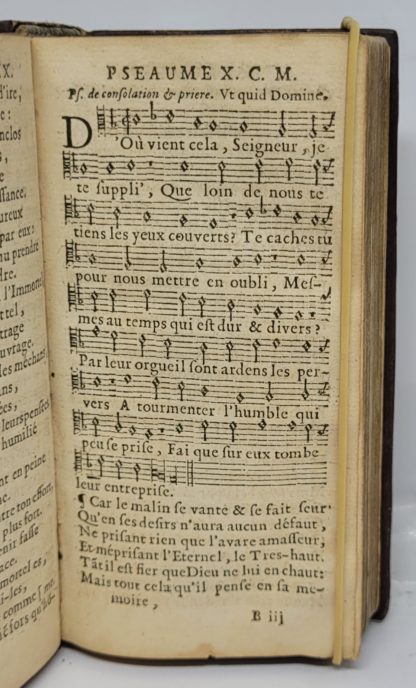 X.
d'ire,
re:
nclos
s,
e
ssance.
ureux
par eux:
nu prendre
dre.
l'Immor-
ttel,
trage
uvrage.
les méchans
ins,
ées,
leurs pensées
humilié
nt en peine
ntre ton effort,
plus fort.
enir fasse
nce,
mortel es,
i-les,
comme
PSEAUME X. C. M.
Ps. de consolation & priere. Vt quid Domine.
D'Où vient cela, Seigneur, je
te suppli', Que loin de nous te
tiens les yeux couverts? Te caches tu
pour nous mettre en oubli, Mes-
mes au temps qui est dur & divers?
Par leur orgueil sont ardens les per-
vers A tourmenter l'humble qui
peu se prise, Fai que sur eux tombe
leur entreprise.
¶ Car le malin se vante & se fait seur
Qu'en ses desirs n'aura aucun défaut,
Ne prisant rien que l'avare amasseur,
Et méprisant l'Eternel, le Tres-haut.
Tãt il est fier que Dieu ne lui en chaut:
Mais tout cela qu'il pense en sa me-
moire,
B iij